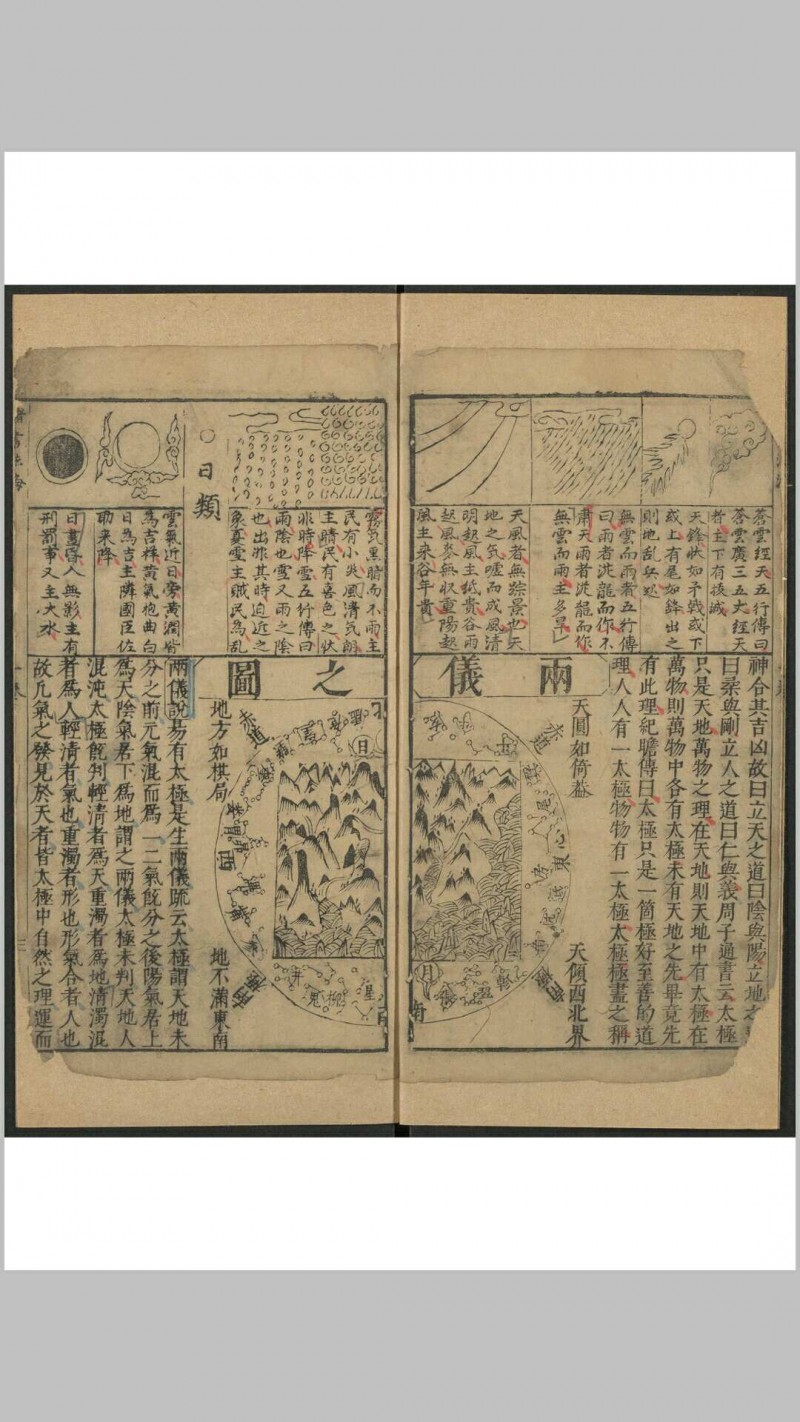 蒼雲經天五行傳曰
蒼雲廣三五丈經天
者主下有拔城
天鋒狀如矛戟或下
或上有尾如鋒出之
則地亂兵起
無雲而雨者五行傳
曰雨者洗龍而作不
肅天雨者洗龍而作
無雲而雨主多旱
天風者無踪景也天
地之气噓而成風清
明起風主
起風麥無收重陽起
風主來谷年貴
神合其吉凶故曰立天之道曰陰與陽立地之
曰柔與剛立人之道曰仁與義周子通書云太極
只是天地萬物之理在天地則天地中有太極在
萬物則萬物中各有太極未有天地之先畢竟先
有此理紀瞻傳曰太極只是一箇極好至善的道
理人人有一太極物物有一太極太極極盡之稱
兩儀
天圓如倚蓋
天傾西北界
赤道
心
東
月
南
霧気黑暗而不雨主
民有小災風清気朗
主晴民有喜色之狀
非時降雪五行傳曰
雨陰也雪又雨之陰
也出非其時迫近之
象夏雪主賊民為亂
○日類
雲氣近日旁黃潤皆
為吉祥黃氣抱曲向
日為吉主隣國臣佐
助來降
日晝昏人無影主有
刑罰事又主大水
之圖
地方如棋局
地不滿東南
赤道
日
西
星
柳
鬼
井
兩儀說易有太極是生兩儀疏云太極謂天地未
分之前元氣混而為一二氣旣分之後陽氣居上
為天陰氣居下為地謂之兩儀太極未判天地人
混沌太極旣判輕清者為天重濁者為地清濁混
者為人輕清者氣也重濁者形也形氣合者人也
故凡氣之發見於天者皆太極中自然之理運而